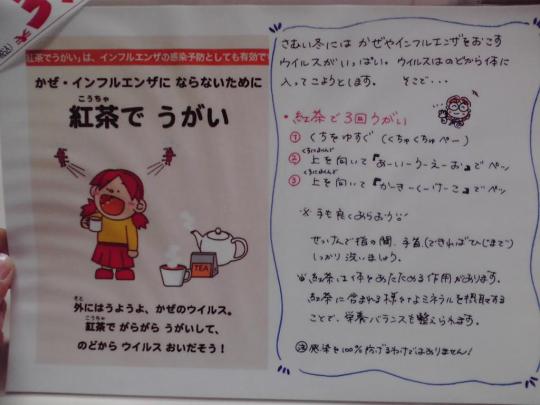 紅茶でうがい」は、インフルエンザの感染予防としても有効で
かぜ・インフルエンザに ならないために
こうちゃ
紅茶で うがい
TEA
そと
外にはうようよ、かぜのウイルス。
こうちゃ
紅茶で がらがら うがいして、
のどから ウイルス おいだそう!
さむい冬には かぜやインフルエンザをおこす
ウイルスがいっぱい。ウイルスはのどから体に
入ってこようとします。 そこで・・・
・紅茶で3回うがい
① くちをゆすぐ(くちゃくちゅペー)
くちにふくんで
② 上を向いて『あーいーうーえーお』でペッ
くちにふくんで
③ 上を向いて『かーきーくーけーこ』でペッ
※ 手も良くあらおうね
せっけんで指の間、手首、(できればひじまで)
しっかり洗いましょう。
紅茶は体をあたためる作用があります。
紅茶に含まれる様々なミネラルを摂取する
ことで、栄養バランスを整えられます。
感染を100%防げるわけではありません!